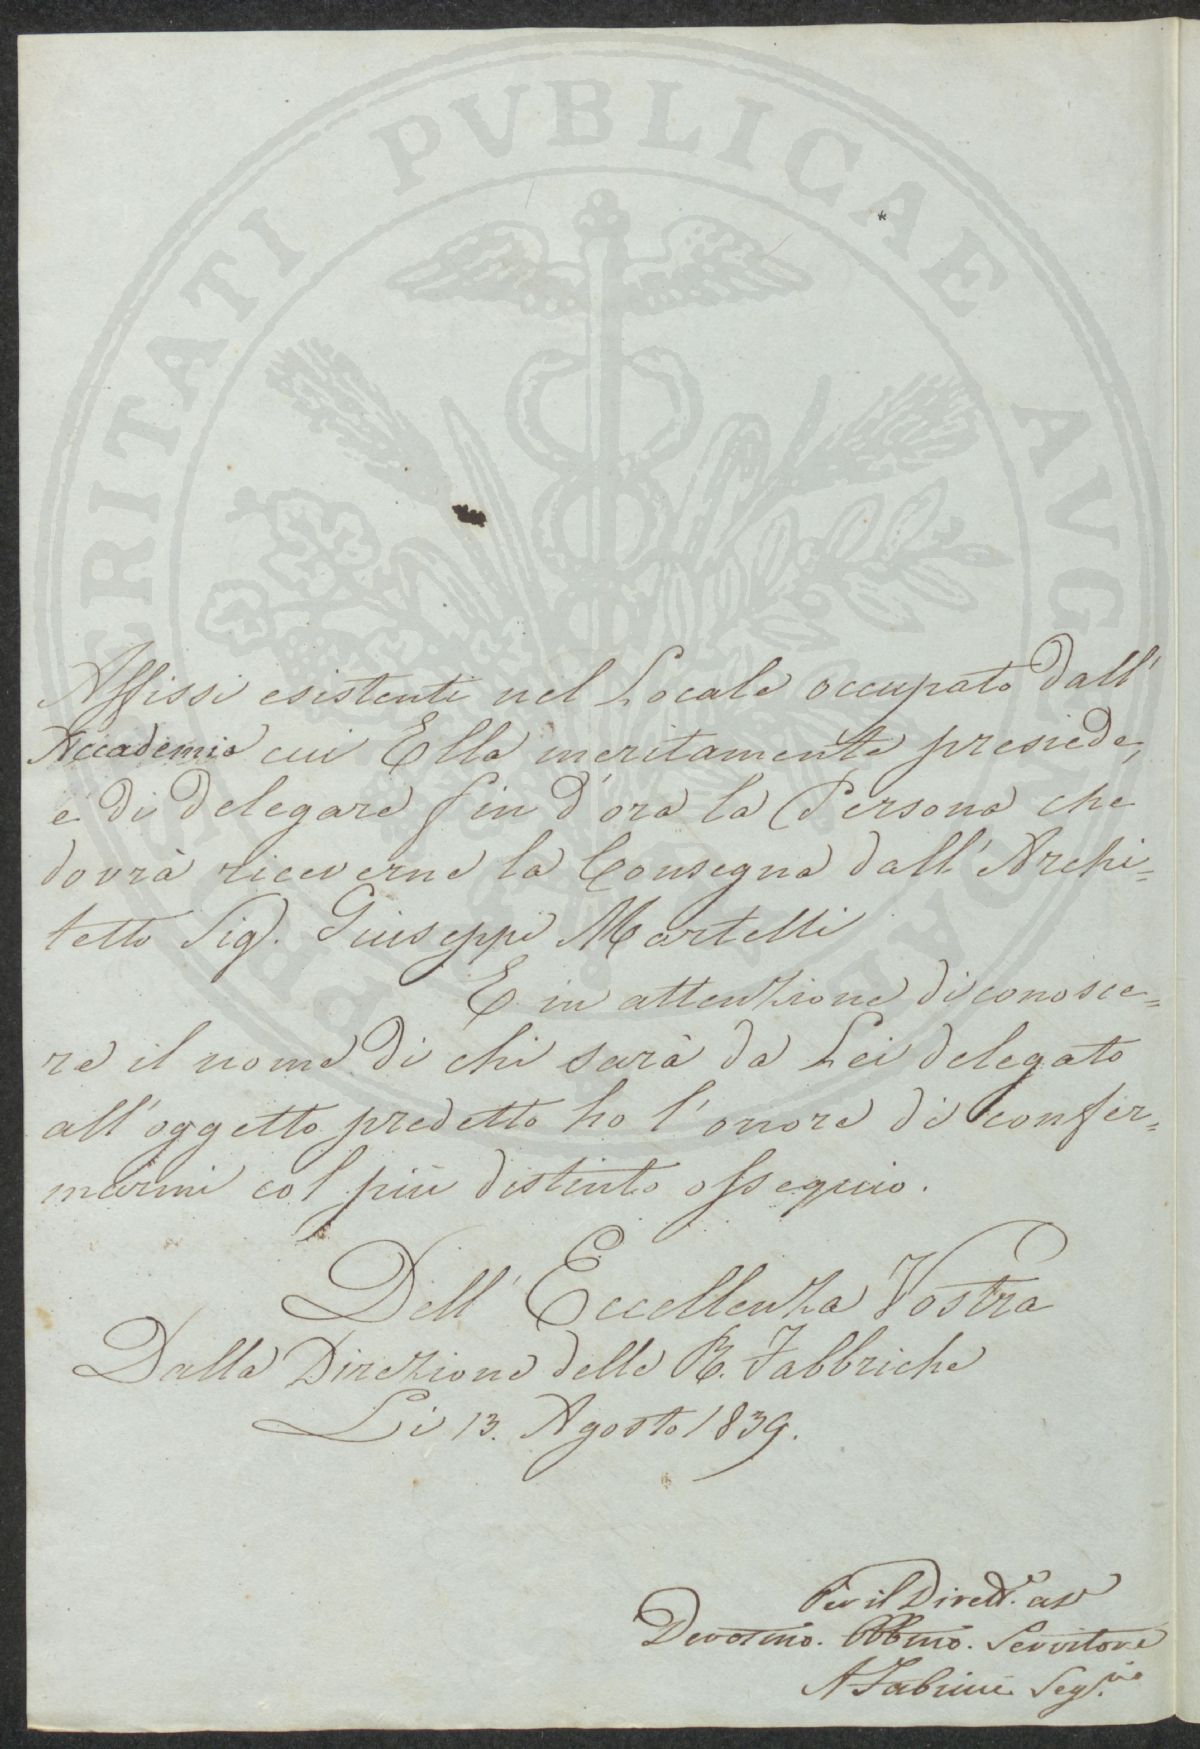 PROSPERITATI PVBLICAE AVGENDAE
Affissi esistenti nel Locale occupato dall'
Accademia cui Ella meritamente presiede,
e di delegare fin d'ora la Persona che
dovrà riceverne la Consegna dall'Archi=
tetto Sig. Giuseppe Martelli
E in attenzione di conosce=
re il nome di chi sarà da Lei delegato
all'oggetto predetto ho l'onore di confer=
marmi col più distinto ossequio.
Dell'Eccellenza Vostra
Dalla Direzione delle R. Fabbriche
Li 13. Agosto 1839.
Per il Dirett.e
Devotmo. Obbmo. Servitore
A Fabrini Seg.rio